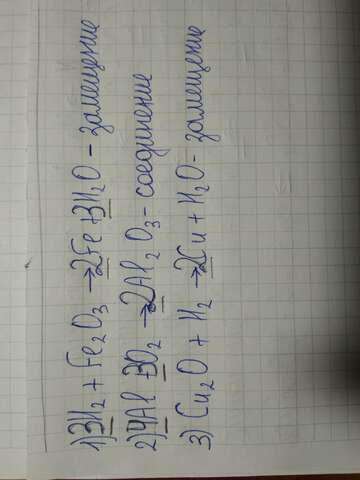 1) 3H₂ + Fe₂O₃ → 2Fe + 3H₂O - замещение
2) 4Al + 3O₂ → 2Al₂O₃ - соединение
3) Cu₂O + H₂ → 2Cu + H₂O - замещение